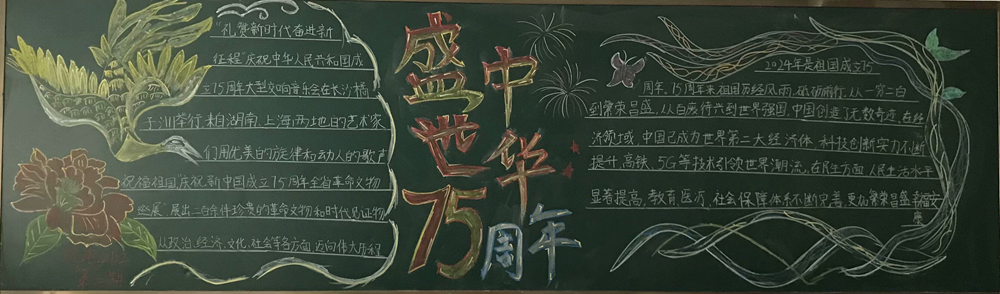 "礼赞新时代奋进新
征程"庆祝中华人民共和国成
立75周年大型交响音乐会在长沙橘
子洲举行.来自湖南、上海两地的艺术家
们用优美的旋律和动人的歌声
祝福祖国"庆祝新中国成立75周年全省革命文物
巡展"展出二百余件珍贵的革命文物和时代见证物
从政治、经济、文化、社会等各方面迈向伟大历程
盛世中华
75周年
2024年是祖国成立75
周年.75周年来祖国历经风雨,砥砺前行,从一穷二白
到繁荣昌盛,从百废待兴到世界强国,中国创造了无数奇迹,在经
济领域,中国已成为世界第二大经济体.科技创新实力不断
提升,高铁、5G等技术引领世界潮流,在民生方面人民生活水平
显著提高,教育医疗、社会保障体系不断完善,更加繁荣昌盛幸福安
康